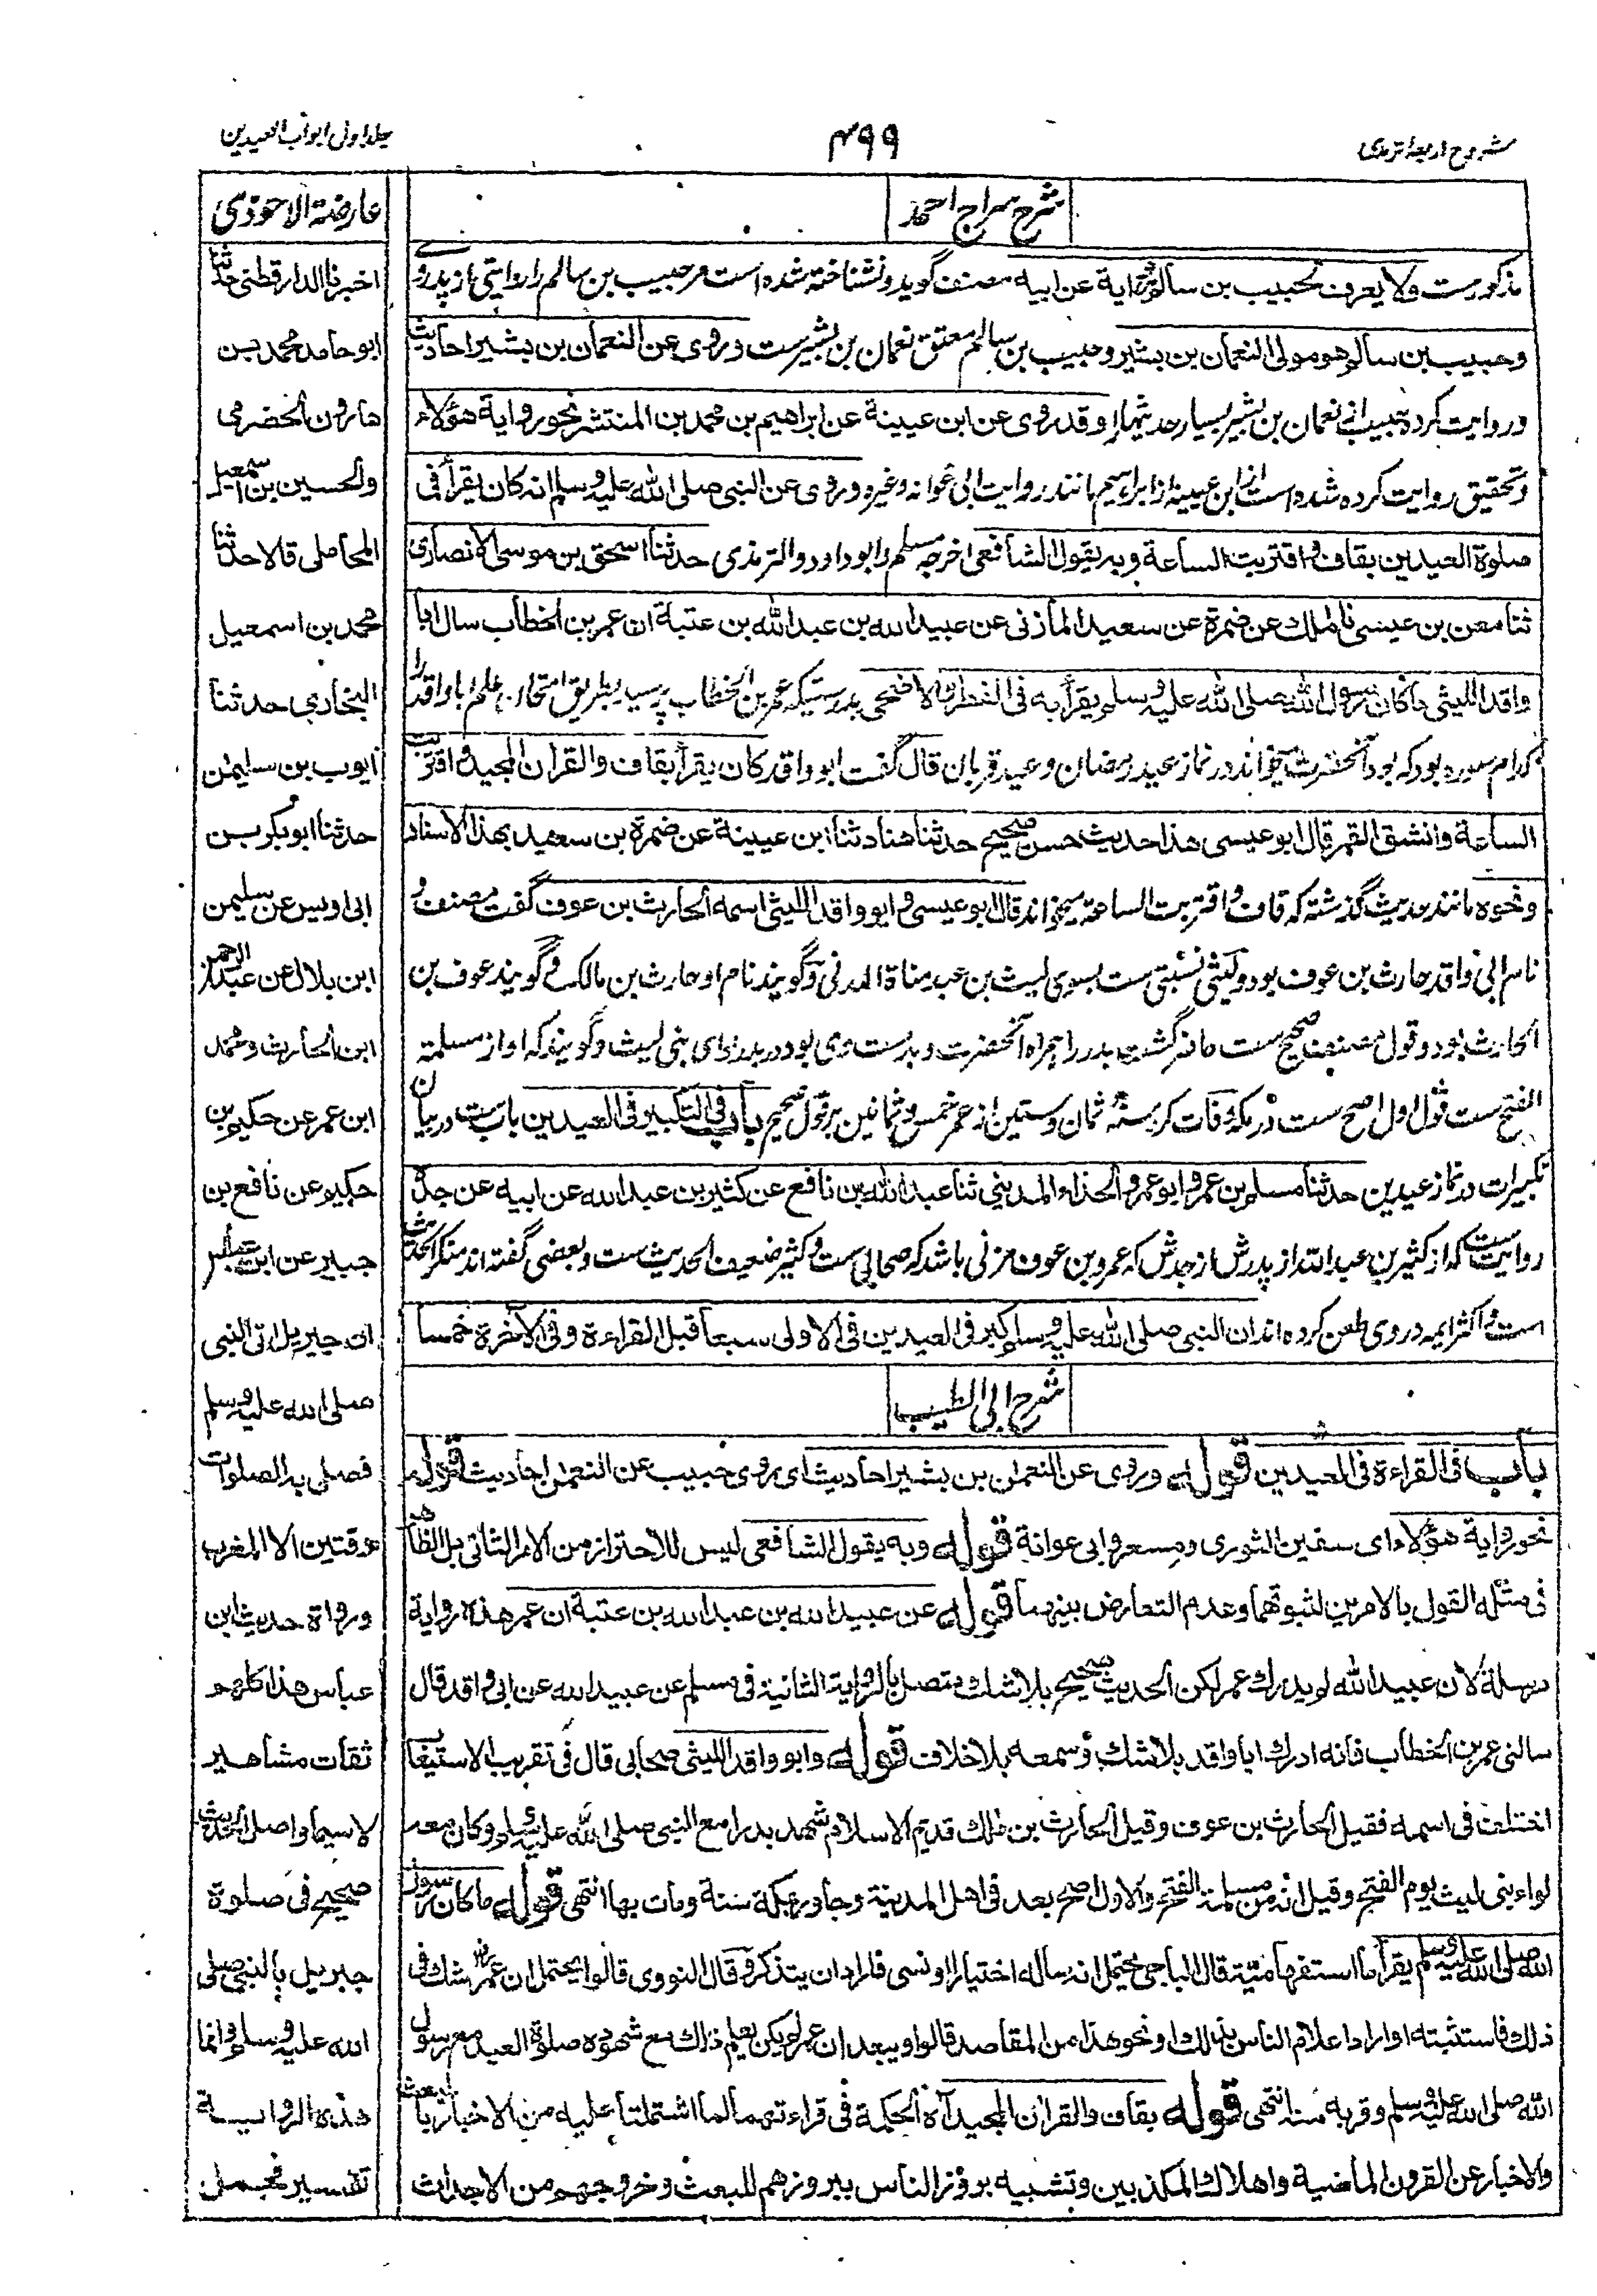 شروح اربعۀ ترمذی
۴۹۹
جلد اولی ابواب العیدین
شرح سراج احمد
مذکورست ولا یعرف لحبیب بن سالم روایة عن ابیه مصنف گوید و نشناخته شده است مر حبیب بن سالم را روایتی از پدر وے
وحبیب بن سالم هو مولی النعمان بن بشیر وحبیب بن سالم معتق نعمان بن بشیرست وروی عن النعمان بن بشیر احادیث
و روایت کرده حبیب از نعمان بن بشیر بسیار حدیثها را وقد روی عن ابن عیینة عن ابراهیم بن محمد بن المنتشر نحو روایة هؤلاء
و تحقیق روایت کرده شده است از ابن عیینه از ابراهیم مانند روایت ابی عوانه وغیره وروی عن النبی صلی الله علیه وسلم انه کان یقرأ فی
صلوة العیدین بقاف واقتربت الساعة وبه یقول الشافعی اخرجه مسلم وابو داود والترمذی حدثنا اسحق بن موسی الانصاری
ثنا معن بن عیسی نا مالک عن ضمرة عن سعید المازنی عن عبید الله بن عبد الله بن عتبة ان عمر بن الخطاب سال ابا
واقد اللیثی ما کان رسول الله صلی الله علیه وسلم یقرأ به فی الفطر والاضحی بدرستیکه عمر بن الخطاب پرسید بطریق امتحان علم ابا واقد را
کدام سوره بود که بود آنحضرت میخواند در نماز عید رمضان و عید قربان قال گفت ابو واقد کان یقرأ بقاف والقران المجید واقتربت
الساعة وانشق القمر قال ابو عیسی هذا حدیث حسن صحیح حدثنا هناد ثنا ابن عیینة عن ضمرة بن سعید بهذا الاسناد
ونحوه مانند حدیث گذشته که قاف و اقتربت الساعة میخواند قال ابو عیسی وابو واقد اللیثی اسمه الحارث بن عوف گفت مصنف و
نام ابی واقد حارث بن عوف بود و لیثی نسبتی ست بسوی لیث بن عبد مناة المدنی و گویند نام او حارث بن مالک و گویند عوف بن
الحارث بود و قول مصنف صحیح ست حاضر گشت بدر را همراه آنحضرت و بدست وی بود در بدر لوای بنی لیث و گویند که او از مسلمة
الفتح ست قول اول اصح ست در مکه وفات کرد سنه ثمان وستین از عمر خمس وثمانین بر قول صحیح باب فی التکبیر فی العیدین بابست در بیان
تکبیرات در نماز عیدین حدثنا مسلم بن عمرو ابو عمرو الحذاء المدینی ثنا عبد الله بن نافع عن کثیر بن عبد الله عن ابیه عن جده
روایت ست که از کثیر بن عبد الله از پدرش از جدش که عمرو بن عوف مزنی باشد که صحابی ست و کثیر ضعیف الحدیث ست و بعضی گفته اند منکر الحدیث
است و اکثر ایمه در وی طعن کرده اند ان النبی صلی الله علیه وسلم کبر فی العیدین فی الاولی سبعا قبل القراءة وفی الآخرة خمسا
شرح ابی الطیب
باب فی القراءة فی العیدین قوله وروی عن النعمان بن بشیر احادیث ای روی حبیب عن النعمن احادیث قوله
نحو روایة هؤلاء ای سفین الثوری ومسعر وابی عوانة قوله وبه یقول الشافعی لیس للاحتراز من الامر الثانی بل الظاهر
فی مثله القول بالامرین لثبوتهما وعدم التعارض بینهما قوله عن عبید الله بن عبد الله بن عتبة ان عمر هذه روایة
مرسلة لان عبید الله لم یدرک عمر لکن الحدیث صحیح بلا شک متصل بالروایة الثانیة فی مسلم عن عبید الله عن ابی واقد قال
سالنی عمر بن الخطاب فانه ادرک ابا واقد بلا شک وسمعه بلا خلاف قوله وابو واقد اللیثی صحابی قال فی تقریب الاستیعاب
اختلف فی اسمه فقیل الحارث بن عوف وقیل الحارث بن مالک قدیم الاسلام شهد بدرا مع النبی صلی الله علیه وسلم وکان معه
لواء بنی لیث یوم الفتح وقیل انه من مسلمة الفتح والاول اصح یعد فی اهل المدینة وجاور بمکة سنة ومات بها انتهی قوله ما کان رسول
الله صلی الله علیه وسلم یقرأ ما استفهامیة قال الباجی یحتمل انه ساله اختبارا او نسی فاراد ان یتذکر وقال النووی قالوا یحتمل ان عمر شک فی
ذلک فاستثبته او اراد اعلام الناس بذلک او نحو هذا من المقاصد قالوا ویبعد ان عمر لم یکن یعلم ذلک مع شهوده صلوة العید مع رسول
الله صلی الله علیه وسلم وقربه منه انتهی قوله بقاف والقران المجید آه الحکمة فی قراءتهما لما اشتملتا علیه من الاخبار بالبعث
والاخبار عن القرون الماضیة واهلاک المکذبین وتشبیه بروز الناس ببروزهم للبعث وخروجهم من الاجداث
عارضة الاحوذی
اخبرنا الدارقطنی حدثنا
ابو حامد محمد بن
هارون الحضرمی
والحسین بن اسمعیل
المحاملی قالا حدثنا
محمد بن اسمعیل
البخاری حدثنا
ایوب بن سلیمن
حدثنا ابو بکر بن
ابی اویس عن سلیمن
ابن بلال عن عبد الرحمن
ابن الحارث ومحمد
ابن عمر عن حکیم بن
حکیم عن نافع بن
جبیر عن ابن عباس
ان جبریل اتی النبی
صلی الله علیه وسلم
فصلی به الصلوات
وقتین الا المغرب
ورواة حدیث ابن
عباس هذا کلهم
ثقات مشاهیر
لاسیما واصل الحدیث
صحیح فی صلوة
جبریل بالنبی صلی
الله علیه وسلم وانما
هذه الروایة
تفسیر مجمل